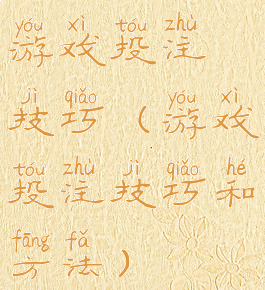 yóu xì tóu zhù
游戏投注
jì qiǎo yóu xì
技巧（游戏
tóu zhù jì qiǎo hé
投注技巧和
fāng fǎ
方法）